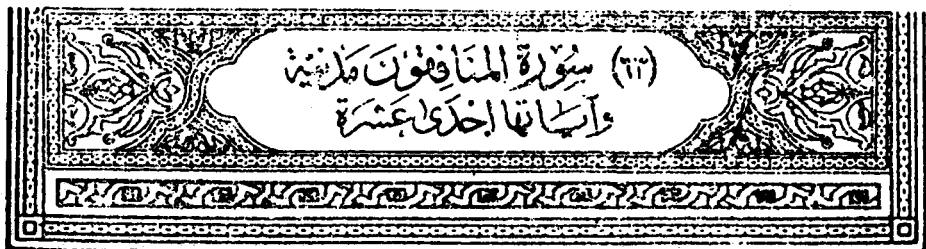 (٦٣) سورة المنافقون مدنية
وآياتها إحدى عشرة